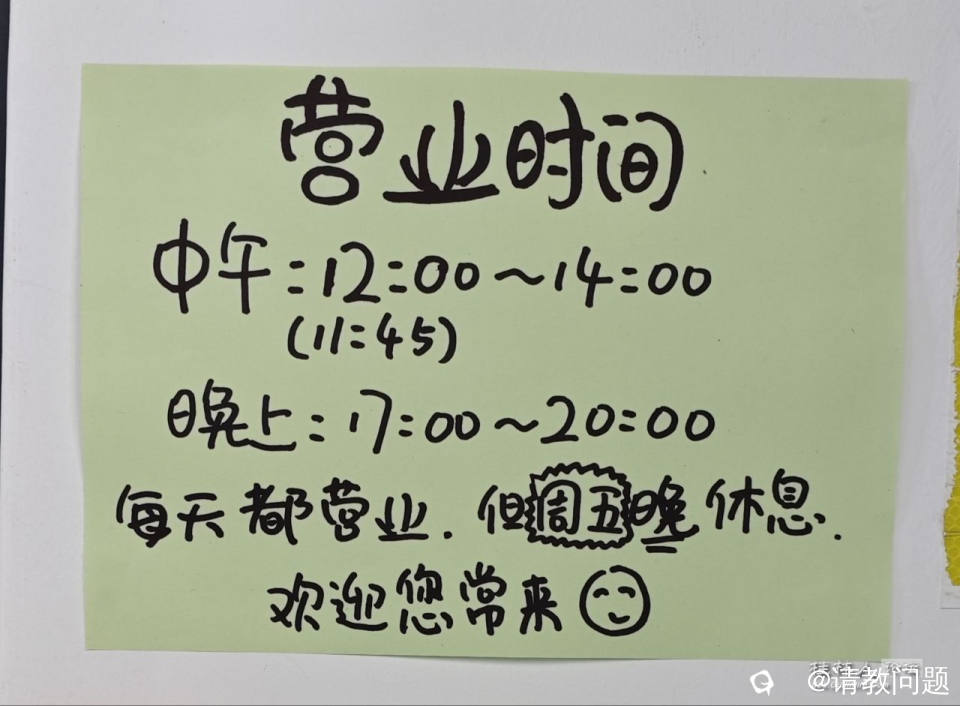 营业时间
中午:12:00~14:00
(11:45)
晚上:17:00~20:00
每天都营业.但周五晚休息.
欢迎您常来
@请教问题